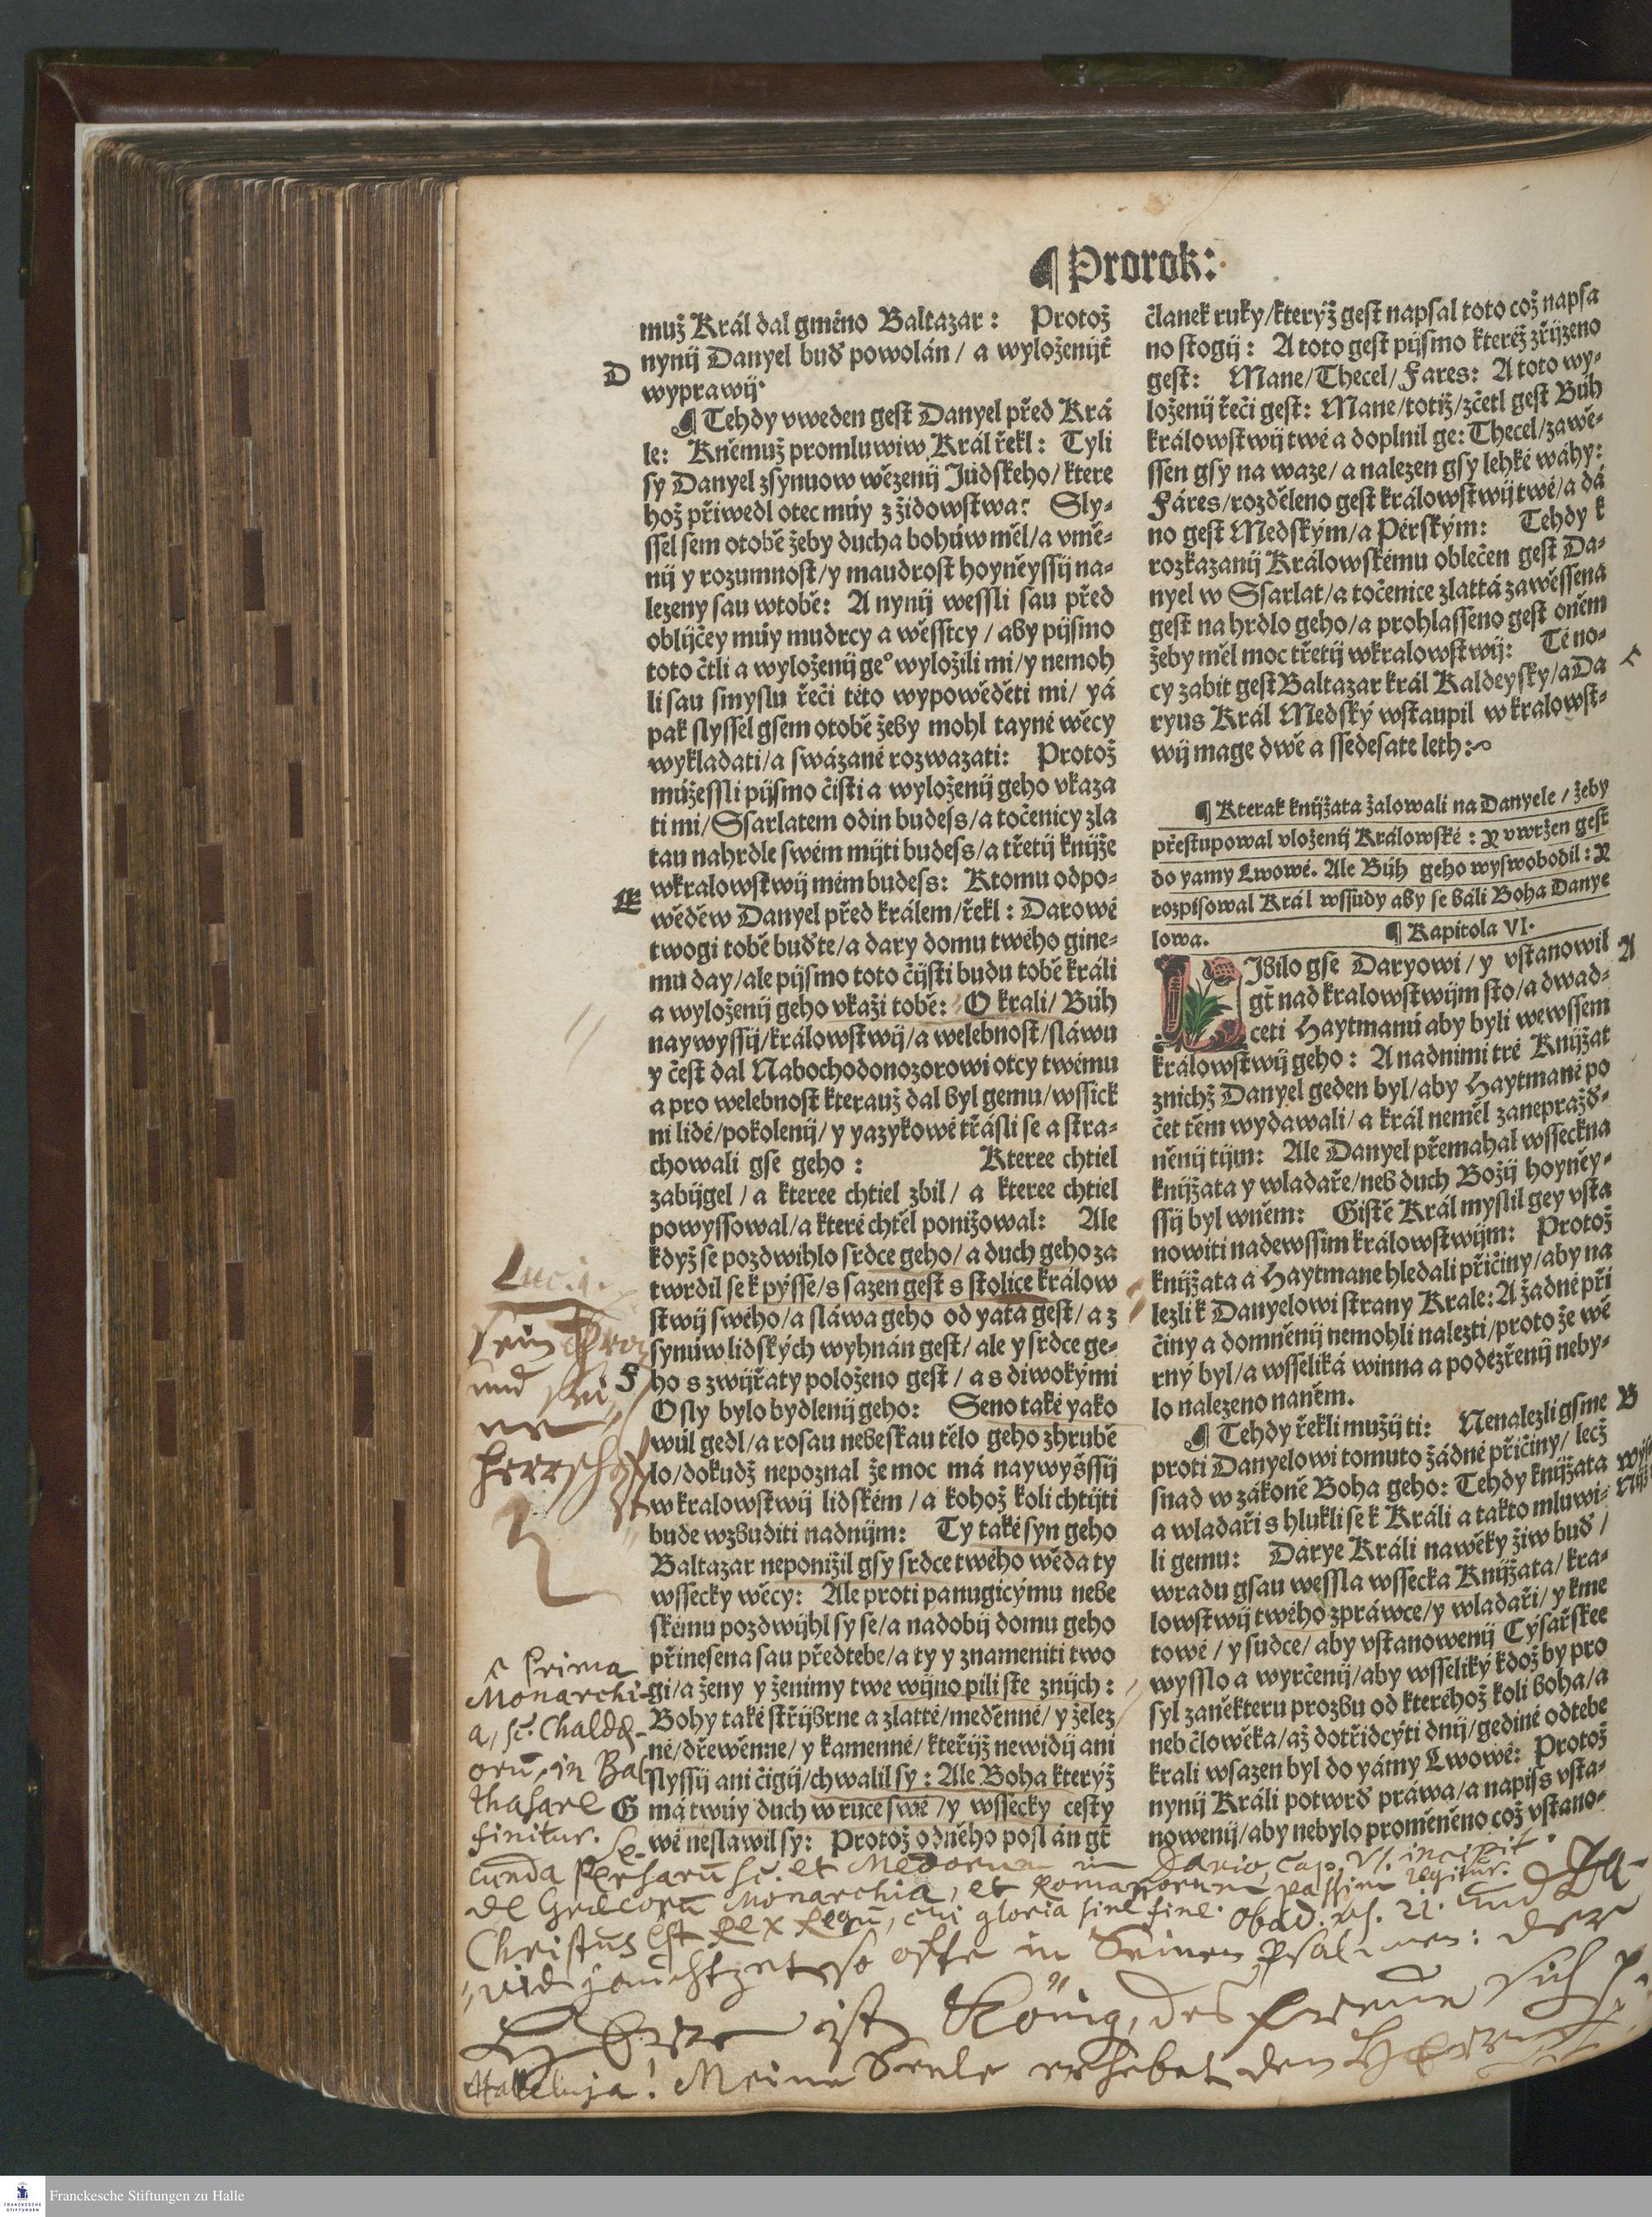 ¶ Prorok:
muž Král dal gméno Baltazar: Protož
D
nynij Danyel buď powolán / a wyloženijť
wyprawij.
¶ Tehdy vweden gest Danyel před Krá
le: Kněmuž promluwiw Král řekl: Tyli
sy Danyel zsynuow wězenij Júdskeho / ktere
hož přiwedl otec múy z židowstwa: Sly-
ssel sem otobě žeby ducha bohúw měl / a vmě-
nij y rozumnost / y maudrost hoyněyssij na-
lezeny sau wtobě: A nynij wessli sau před
oblijčey múy mudrcy a wěsstcy / aby pijsmo
toto čtli a wyloženij ge° wyložili mi / y nemoh
li sau smyslu řeči této wypowěděti mi / yá
pak slyssel gsem otobě žeby mohl tayné wěcy
wykladati / a swázané rozwazati: Protož
múžessli pijsmo čisti a wyloženij geho vkaza
ti mi / Ssarlatem odin budess / a točenicy zla
tau nahrdle swém mijti budess / a třetij knijže
wkralowstwij mém budess: Ktomu odpo-
E
wěděw Danyel před králem / řekl: Darowé
twogi tobě buďte / a dary domu twého gine-
mu day / ale pijsmo toto čijsti budu tobě králi
a wyloženij geho vkaži tobě: O krali / Búh
naywyssij / králowstwij / a welebnost / sláwu
y čest dal Nabochodonozorowi otcy twému
a pro welebnost kterauž dal byl gemu / wssick
ni lidé / pokolenij / y yazykowé třásli se a stra-
chowali gse geho: Kteree chtiel
zabijgel / a kteree chtiel zbil / a kteree chtiel
powyssowal / a které chtěl ponižowal: Ale
když se pozdwihlo srdce geho / a duch geho za
twrdil se k pýsse / s sazen gest s stolice králow
stwij swého / a sláwa geho od yata gest / a z
synúw lidských wyhnán gest / ale y srdce ge-
F
ho s zwijřaty položeno gest / a s diwokými
Osly bylo bydlenij geho: Seno také yako
wúl gedl / a rosau nebeskau tělo geho zhrubě
lo / dokudž nepoznal že moc má naywyšssij
w kralowstwij lidském / a kohož koli chtijti
bude wzbuditi nadnijm: Ty také syn geho
Baltazar neponižil gsy srdce twého wěda ty
wssecky wěcy: Ale proti panugicýmu nebe
skému pozdwijhl sy se / a nadobij domu geho
přinesena sau předtebe / a ty y znameniti two
gi / a ženy y ženimy twe wijno pili ste znijch:
Bohy také střijbrne a zlatté / meděnné / y želez
né / dřewěnne / y kamenné / kteřijž newidij ani
slyssij ani čigij / chwalil sy: Ale Boha kterýž
G
má twúy duch w ruce swé / y wssecky cesty
wé neslawil sy: Protož odněho poslán gt
članek ruky / kterýž gest napsal toto což napsa
no stogij: A toto gest pijsmo kteréž zřijzeno
gest: Mane / Thecel / Fares: A toto wy-
loženij řeči gest: Mane / totiž / zčetl gest Búh
králowstwij twé a doplnil ge: Thecel / zawě-
ssen gsy na waze / a nalezen gsy lehké wáhy:
Fáres / rozděleno gest králowstwij twé / a dá
no gest Medským / a Pérským: Tehdy k
rozkazanij Králowskému oblečen gest Da-
nyel w Ssarlat / a točenice zlattá zawěssena
gest na hrdlo geho / a prohlasseno gest oněm
žeby měl moc třetij wkralowstwij: Té no-
cy zabit gest Baltazar král Kaldeysky / a Da
ryus Král Medský wstaupil w kralowst-
wij mage dwě a ssedesate leth:
¶ Kterak knijžata žalowali na Danyele / žeby
přestupowal vloženij Králowské: y vwržen gest
do yamy Lwowé. Ale Búh geho wyswobodil: y
rozpisowal Král wssudy aby se báli Boha Danye
lowa. ¶ Kapitola VI.
A
LJbilo gse Daryowi / y vstanowil
gt nad kralowstwijm sto / a dwad-
ceti Haytmanú aby byli wewssem
králowstwij geho: A nadnimi tré Knijžat
znichž Danyel geden byl / aby Haytmané po
čet těm wydawali / a král neměl zanepražd-
něnij tijm: Ale Danyel přemahal wsseckna
knijžata y wladaře / neb duch Božij hoyněy-
ssij byl wněm: Gistě Král myslil gey vsta
nowiti nadewssim králowstwijm: Protož
knijžata a Haytmane hledali přičiny / aby na
lezli k Danyelowi strany Krale: A žadné při
činy a domněnij nemohli nalezti / proto že wě
rný byl / a wsseliká winna a podezřenij neby-
lo nalezeno naněm.
B
¶ Tehdy řekli mužij ti: Nenalezli gsme
proti Danyelowi tomuto žádné přičiny / lečž
snad w zákoně Boha geho: Tehdy knijžata
a wladaři s hlukli se k Králi a takto mluwi-
li gemu: Darye Králi nawěky žiw buď /
wradu gsau wessla wssecka Knijžata / kra-
lowstwij twého zpráwce / y wladaři / y kme
towé / y sudce / aby vstanowenij Cýsařskee
wysslo a wyrčenij / aby wsseliký kdož by pro
syl zaněkteru prozbu od kteréhož koli boha / a
neb člowěka / až dotřidcýti dnij / gediné odtebe
krali wsazen byl do yámy Lwowé: Protož
nynij Králi potwrď práwa / a napiss vsta-
nowenij / aby nebylo proměněno což vstano-
Luc. 1.
prima
Monarchi-
a, sc. Chaldæ-
orũ, in Bal
thasare
finitur. Se-
cunda Persarũ sc. et Medorum in Dario, Cap. VI. incipit.
de Græcorũ Monarchia, et Romanorum passim legitur.
Christus est Rex Regũ, cui gloria sine fine. Obad. vs. 21. und Da-
vid jauchtzet so offte in Seinen Psalmen: der
HErr ist König, des freue sich
Halleluja! Meine Seele erhebet den HErrn
Franckesche Stiftungen zu Halle